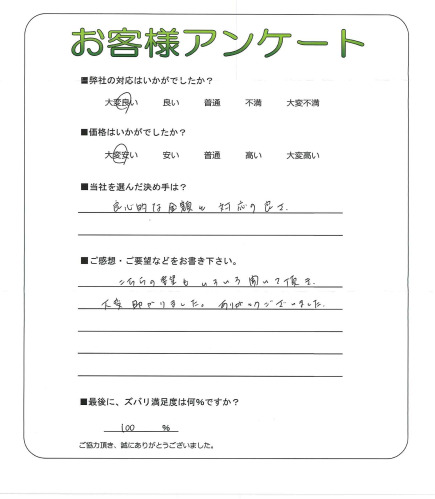 お客様アンケート
■弊社の対応はいかがでしたか？
大変良い 良い 普通 不満 大変不満
■価格はいかがでしたか？
大変安い 安い 普通 高い 大変高い
■当社を選んだ決め手は？
良心的な金額と対応の良さ.
■ご感想・ご要望などをお書き下さい。
こちらの希望もいろいろ聞いて頂き、
大変助かりました。ありがとうございました.
■最後に、ズバリ満足度は何%ですか？
100 %
ご協力頂き、誠にありがとうございました。